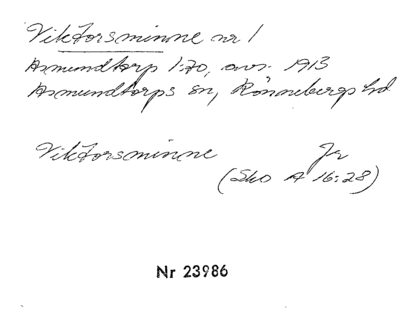 Viktorsminne nr 1
Asmundtorp 1:70, avs. 1913
Asmundtorps sn, Rönnebergs hd
Viktorsminne Jr
(Sko A 16:28)
Nr 23986